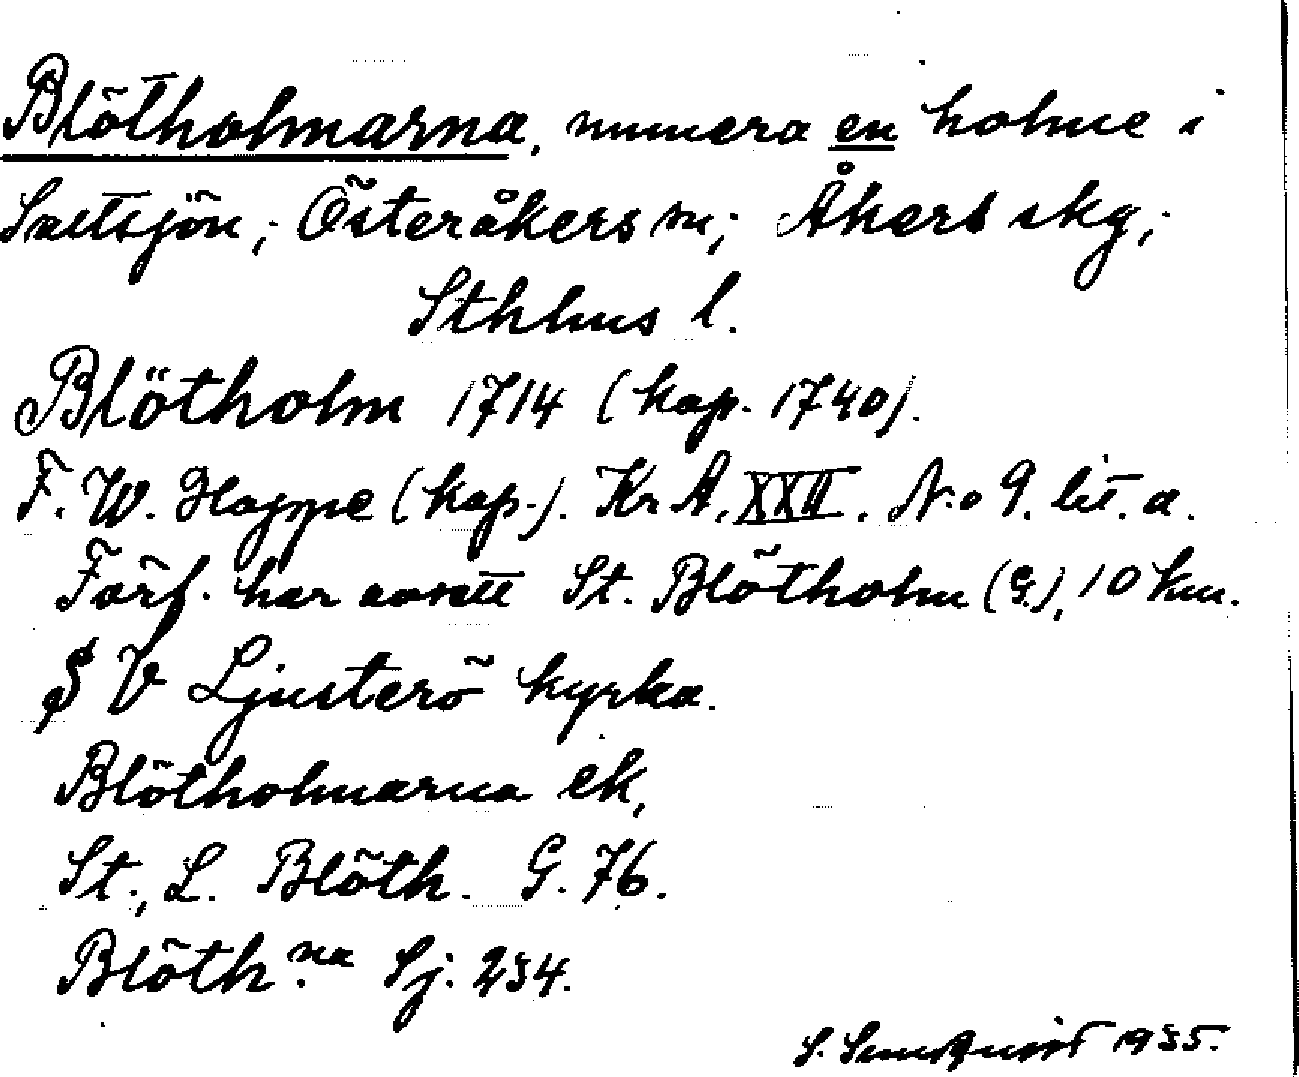 Blötholmarna, numera en holme i
Saltsjön; Österåkers sn; Åkers skg;
Sthlms l.
Blötholm 1714 (kop. 1740).
F. W. Hoppe (kop.). Kr A. XXII. No 9. lit. a.
Förf. har avsett St. Blötholm (G.), 10 km.
S V Ljusterö kyrka.
Blötholmarna ek,
St., L. Blöth. G. 76.
Blöth.na Sj. 234.
S. 1935.